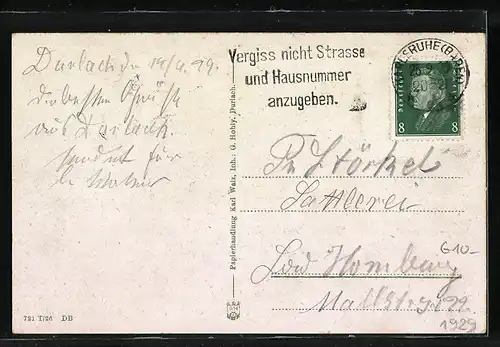 Durlach den 19/4. 29.
die besten Grüße
aus Durlach.
sendet für
Vergiss nicht Strasse
und Hausnummer
anzugeben.
KARLSRUHE (BADEN)
Deutsches Reich
8 8
Papierhandlung Karl Walz, Inh.: G. Hohly, Durlach.
Störkel
Sattlerei
Bad Homburg
G10-
1929
721 T/26 DB